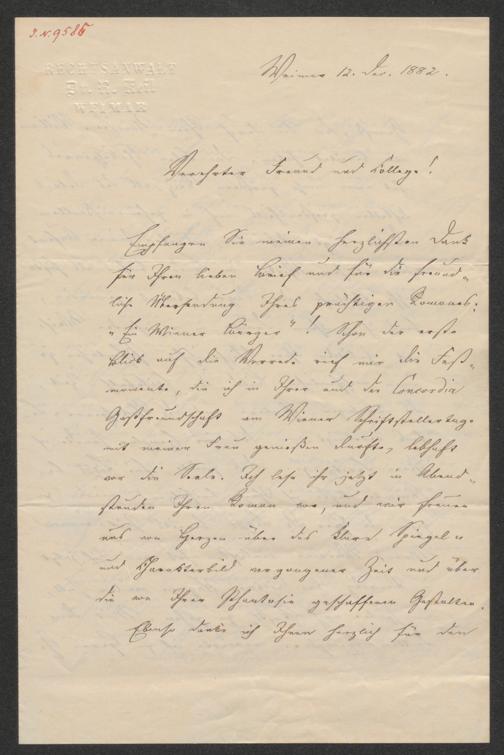 J.N. 9585
RECHTSANWALT
Dr. R. Keil
WEIMAR
Weimar 12. Dec. 1882.
Verehrter Freund und College!
Empfangen Sie meinen herzlichsten Dank
für Ihren lieben Brief und für die freund-
liche Übersendung Ihres prächtigen Romanes:
„Ein Wiener Bürger"! Schon der erste
Blick auf die Vorrede rief mir die Fest-
momente, die ich in Ihrer und der Concordia
Gastfreundschaft am Wiener Schriftstellertage
mit meiner Frau genießen durfte, lebhaft
vor die Seele. Ich lese ihr jetzt in Abend-
stunden Ihren Roman vor, und wir freuen
uns von Herzen über das klare Spiegel-
und Charakterbild vergangener Zeit und über
die von Ihrer Phantasie geschaffenen Gestalten.
Ebenso danke ich Ihnen herzlich für den